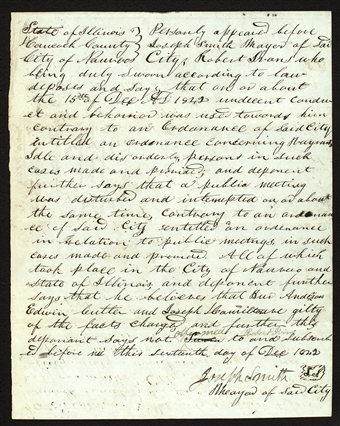 State of Illinois } Personly appeared before
Hancock County } Joseph Smith Mayor of Said
City of Nauvoo City, Robert Ivans who
being duly sworn according to law
deposes and Says that on or about
the 15th of Dec AD 1842 undecent conduc
et and behavior was use towards him
contrary to an Ordenance of Said City
Entitled an ordenance concerning Vagrants
Idle and disorderly persons in Such
cases made and provided and deponent
further Says that a public meeting
was disturbed and interupted on or about
the Same time, contrary to an ordenan
ce of Said City entitled an ordenance
in relation to public meetings in such
cases made and provided All of which
took place in the City of Nauvoo and
State of Illinois, and deponent further
Says that he believes that Anderson
Edwin Cutler and Joseph Hamilton gilty
of the facts charged and further this
deponant Says not to and Subscrib
ed before me this day of Dec 1842
Joseph Smith
Mayor of Said City